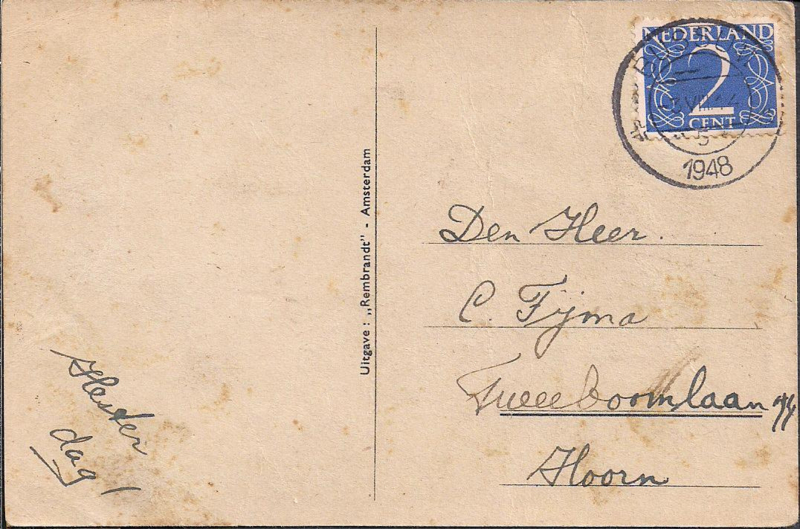 NEDERLAND
2
CENT
1948
Uitgave: „Rembrandt” - Amsterdam
Den Heer.
C. Fijma
Tweeboomlaan 94
Hoorn
Hester
dag!